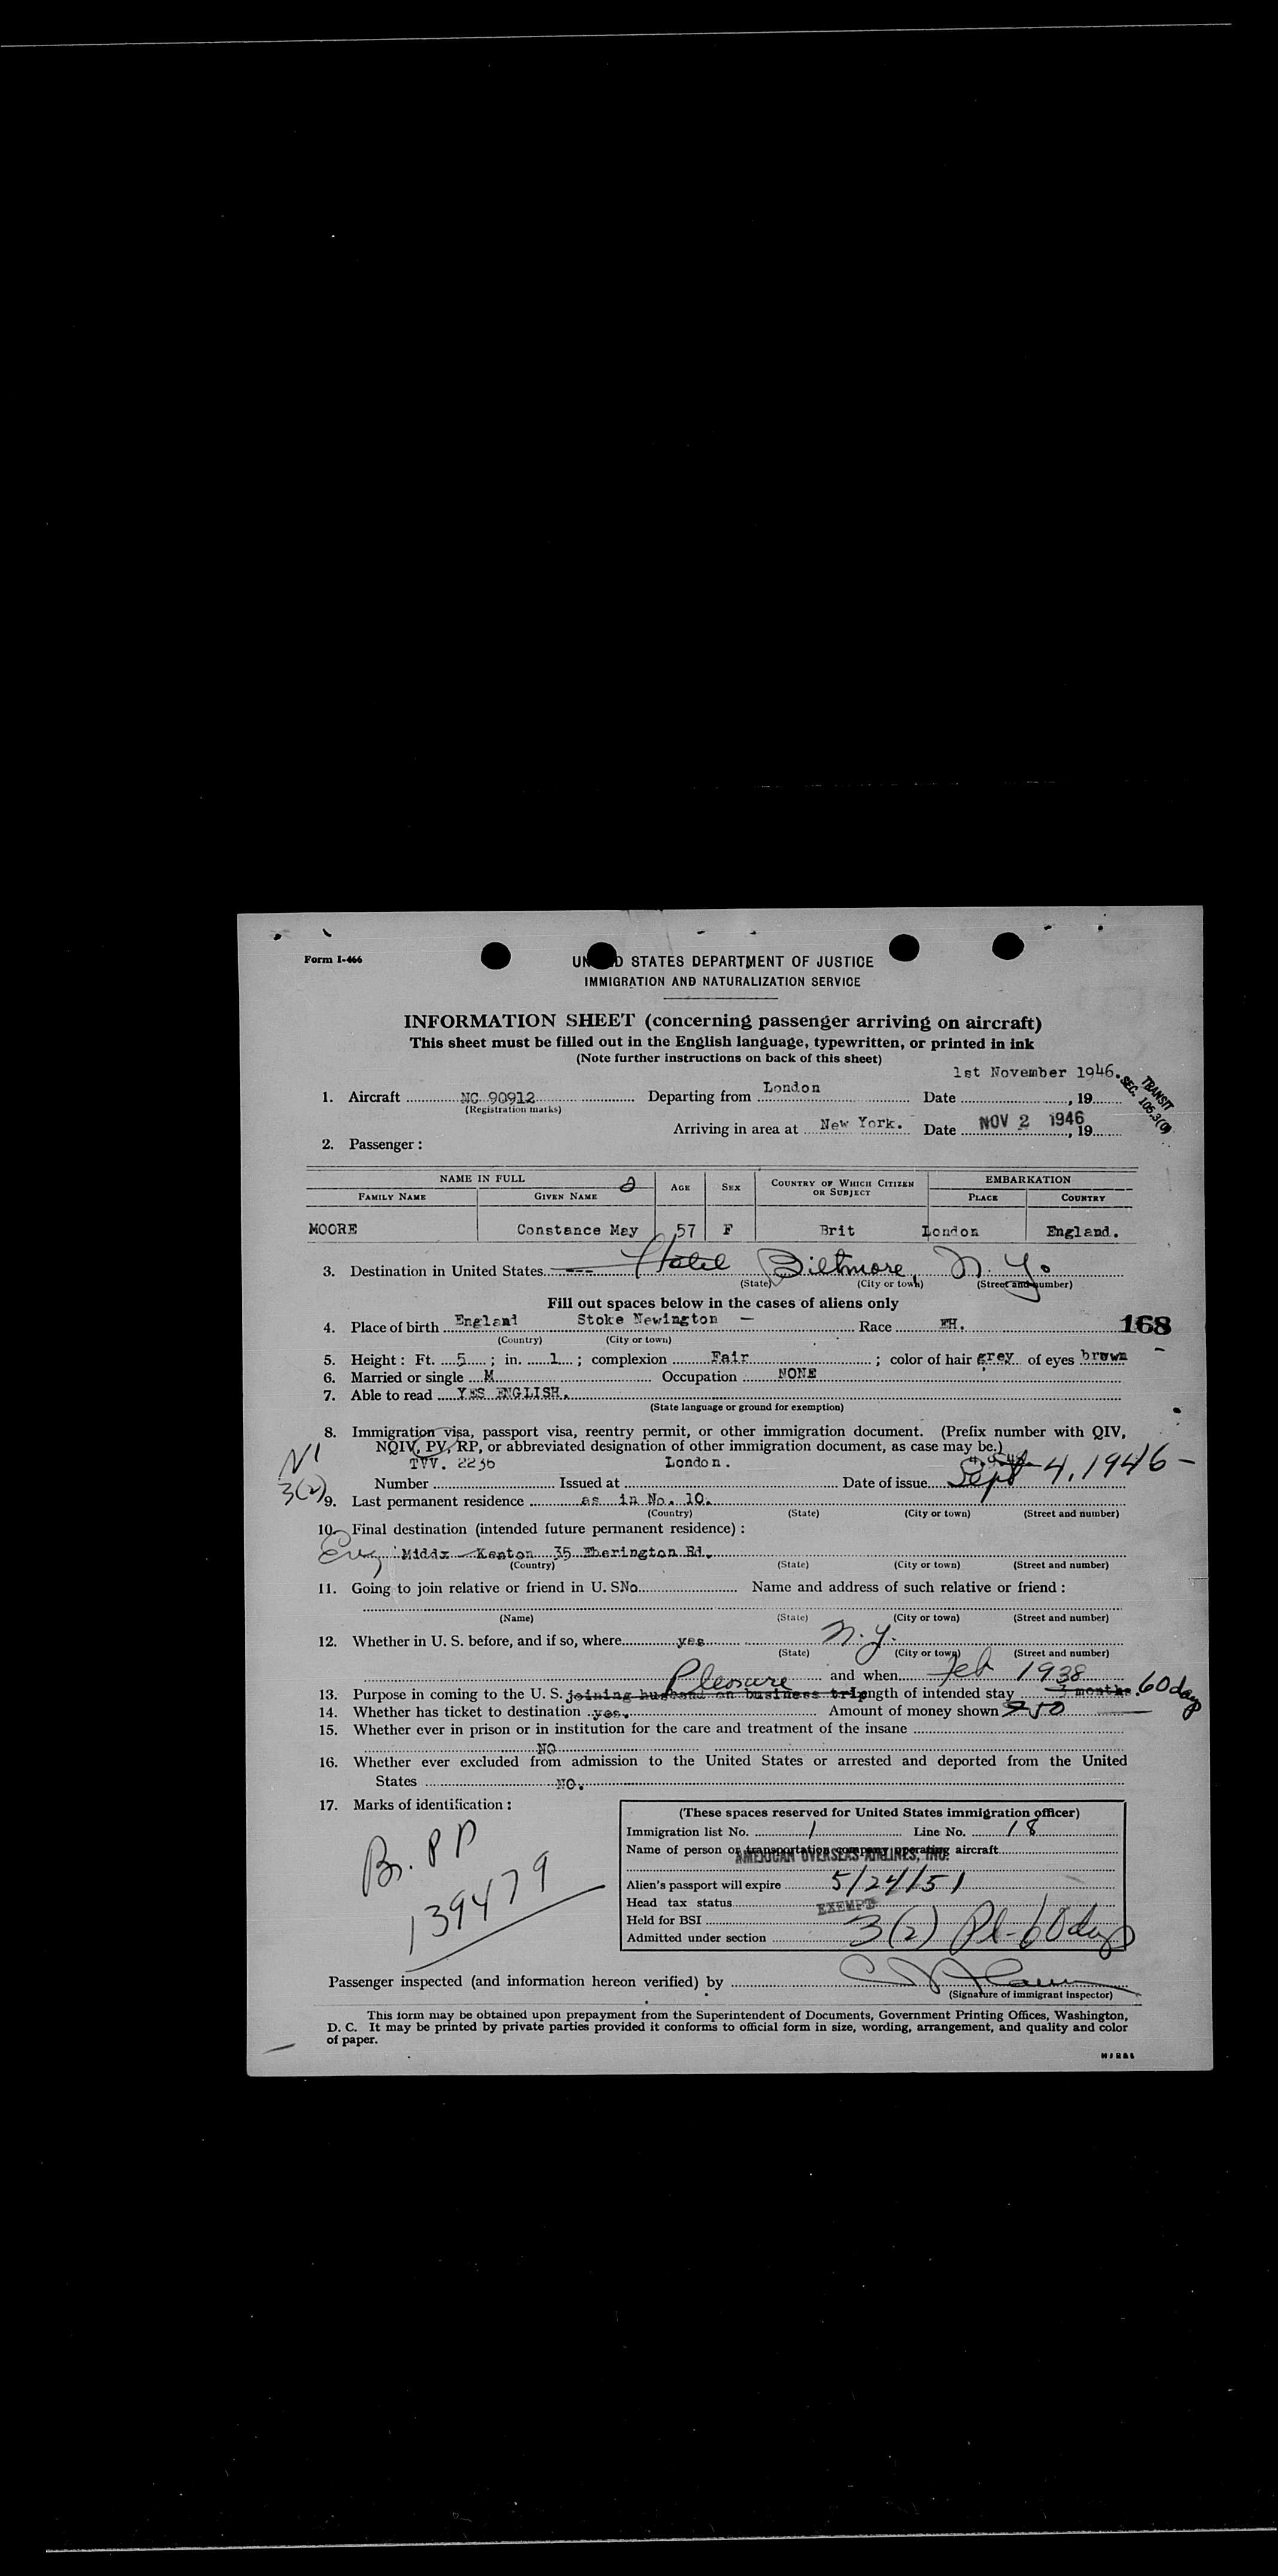 Form I-466
UNITED STATES DEPARTMENT OF JUSTICE
IMMIGRATION AND NATURALIZATION SERVICE
INFORMATION SHEET (concerning passenger arriving on aircraft)
This sheet must be filled out in the English language, typewritten, or printed in ink
(Note further instructions on back of this sheet)
1st November 1946.
TRANSIT
SEC. 105.3(c)
1. Aircraft NC 90912 Departing from London Date , 19
(Registration marks)
Arriving in area at New York. Date NOV 2 1946 , 19
2. Passenger:
NAME IN FULL AGE SEX COUNTRY OF WHICH CITIZEN OR SUBJECT EMBARKATION
FAMILY NAME GIVEN NAME PLACE COUNTRY
MOORE Constance May 57 F Brit London England.
3. Destination in United States --- Hotel Biltmore, N. Y.
(State) (City or town) (Street and number)
Fill out spaces below in the cases of aliens only
4. Place of birth England Stoke Newington — Race EH. 168
(Country) (City or town)
5. Height: Ft. 5; in. 1; complexion Fair; color of hair grey of eyes brown
6. Married or single M Occupation NONE
7. Able to read YES ENGLISH.
(State language or ground for exemption)
8. Immigration visa, passport visa, reentry permit, or other immigration document. (Prefix number with QIV,
NQIV, PV, RP, or abbreviated designation of other immigration document, as case may be.)
TVV. 2236 London.
Number Issued at Date of issue Sept 4, 1946 -
3(2)
9. Last permanent residence as in No. 10.
(Country) (State) (City or town) (Street and number)
10. Final destination (intended future permanent residence):
Eng, Middx Kenton 35 Eherington Rd.
(Country) (State) (City or town) (Street and number)
11. Going to join relative or friend in U. S No Name and address of such relative or friend:
(Name) (State) (City or town) (Street and number)
12. Whether in U. S. before, and if so, where yes N. Y.
(State) (City or town) (Street and number)
and when Feb 1938
Pleasure
13. Purpose in coming to the U. S. joining husband on business trip Length of intended stay 3 months. 60 days
14. Whether has ticket to destination yes. Amount of money shown 50
15. Whether ever in prison or in institution for the care and treatment of the insane
NO
16. Whether ever excluded from admission to the United States or arrested and deported from the United
States NO.
17. Marks of identification:
Br. PP
139479
(These spaces reserved for United States immigration officer)
Immigration list No. 1 Line No. 18
Name of person or transportation company operating aircraft
AMERICAN OVERSEAS AIRLINES, INC.
Alien's passport will expire 5/24/51
Head tax status EXEMPT
Held for BSI
Admitted under section 3(2) Pl-60 days
Passenger inspected (and information hereon verified) by
(Signature of immigrant inspector)
This form may be obtained upon prepayment from the Superintendent of Documents, Government Printing Offices, Washington,
D. C. It may be printed by private parties provided it conforms to official form in size, wording, arrangement, and quality and color
of paper.